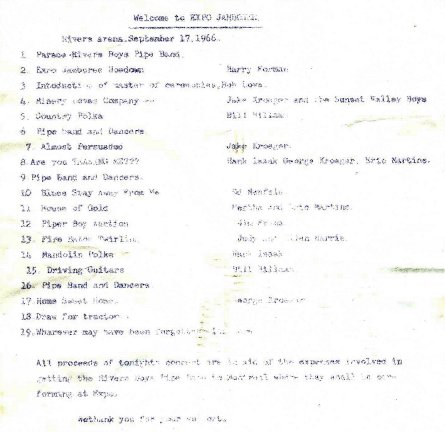 Welcome to EXPO JAMBOREE.
Rivers arena. September 17. 1966.
1 Parade-Rivers Boys Pipe Band.
2. Expo Jamboree Hoedown Harry Forman
3 Intoduction of master of ceremonies, Bob Lowe.
4. Misery Loves Company Jake Kroeger and the Sunset Valley Boys
5. Country Polka Bill Hillman
6 Pipe band and Dancers.
7. Almost Persuaded Jake Kroeger.
8. Are you TEASING ME??? Hank Iasak George Kroeger. Eric Martins.
9 Pipe Band and Dancers.
10 Blues Stay Away From Me Ed
11 House of Gold Bertha and Eric Martins.
12 Piper Boy Auction
13. Fire Baton Twirling. Judy and
14 Mandolin Polka Hank Iasak
15. Driving Guitars Bill Hillman
16. Pipe Band and Dancers
17 Home Sweet Home. George Kroeger
18. Draw for tractor
19. Whatever may have been forgotten
All proceeds of tonights concert are in aid of the expenses involved in
getting the Rivers Boys Pipe Band to Montreal where they shall be per-
forming at Expo.
wethank you for your support.